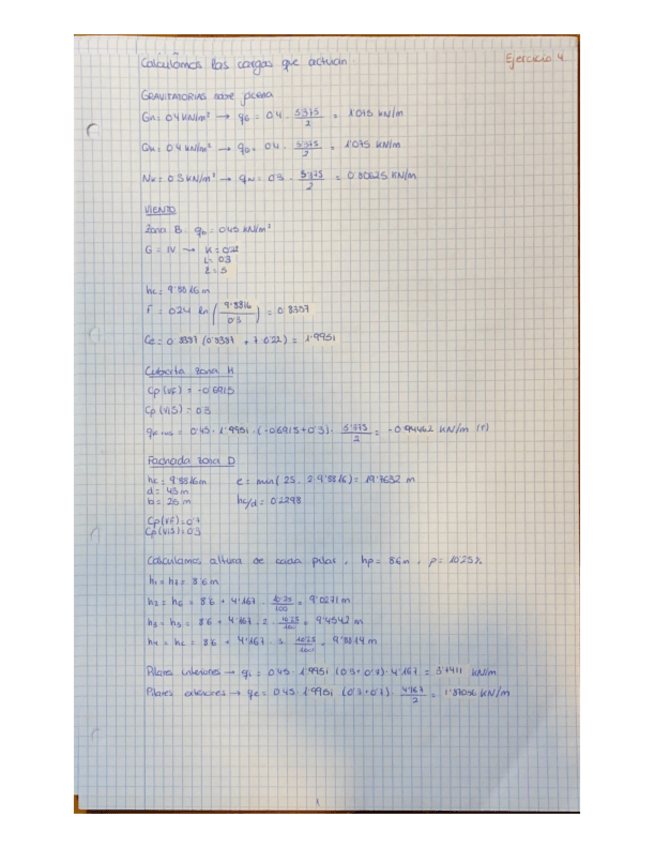 Calculamos las cargas que actúan
Ejercicio 4
GRAVITATORIAS sobre pórtico
Gk = 0'4 kN/m² → qG = 0'4 · 5'375/2 = 1'075 kN/m
Qk = 0'4 kN/m² → qQ = 0'4 · 5'375/2 = 1'075 kN/m
Nk = 0'3 kN/m² → qN = 0'3 · 5'375/2 = 0'80625 kN/m
VIENTO
Zona B qb = 0'45 kN/m²
G = IV → K = 0'22
L = 0'3
Z = 5
hc = 9'8816 m
F = 0'22 ln (9'8816/0'3) = 0'8357
Ce = 0'8357 (0'8357 + 7·0'22) = 1'9951
Cubierta zona H
Cp (VF) = -0'6915
Cp (VIS) = 0'3
= 0'45 · 1'9951 · (-0'6915+0'3) · 5'375/2 = -0'94462 kN/m (↑)
Fachada zona D
hc = 9'8816 m e = min (25, 2·9'8816) = 19'7632 m
d = 43 m
b = 25 m hc/d = 0'2298
Cp (VF) = 0'7
Cp (VIS) = 0'3
Calculamos altura de cada pilar, hp = 8'6 m, p = 10'25%
h1 = h7 = 8'6 m
h2 = h6 = 8'6 + 4'167 · 10'25/100 = 9'0271 m
h3 = h5 = 8'6 + 4'167 · 2 · 10'25/100 = 9'4542 m
h4 = hc = 8'6 + 4'167 · 3 · 10'25/100 = 9'8814 m
Pilares interiores → qi = 0'45 · 1'9951 (0'3+0'7) · 4'167 = 3'7411 kN/m
Pilares exteriores → qe = 0'45 · 1'9951 (0'3+0'7) · 4'167/2 = 1'87056 kN/m
1